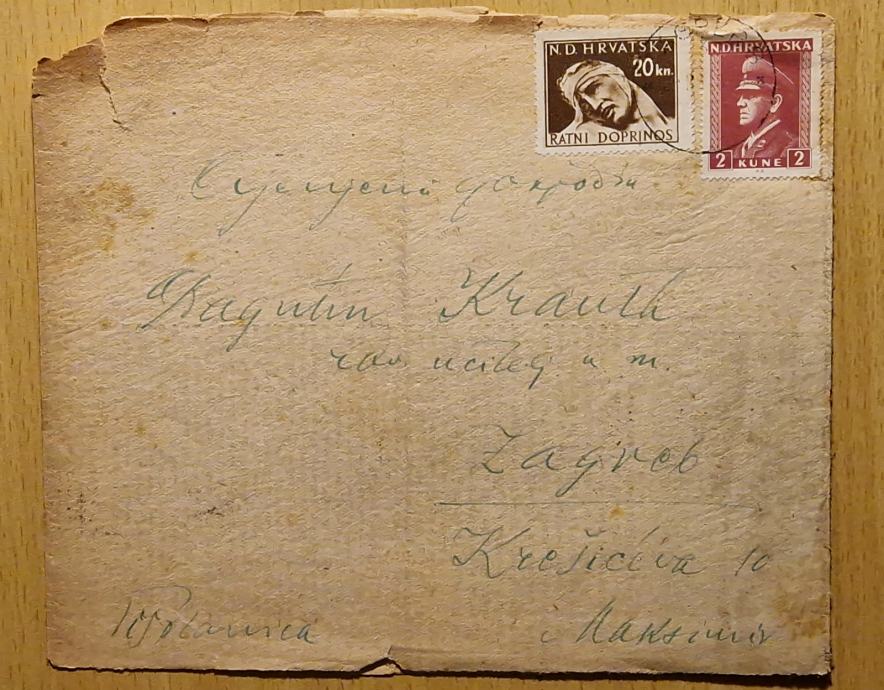 N.D. HRVATSKA
20 kn.
RATNI DOPRINOS
N.D. HRVATSKA
2 KUNE 2
Cijenjeni gospodin
Dragutin Krauth
rav. učitelj u m.
Zagreb
Krešićeva 10
Maksimir